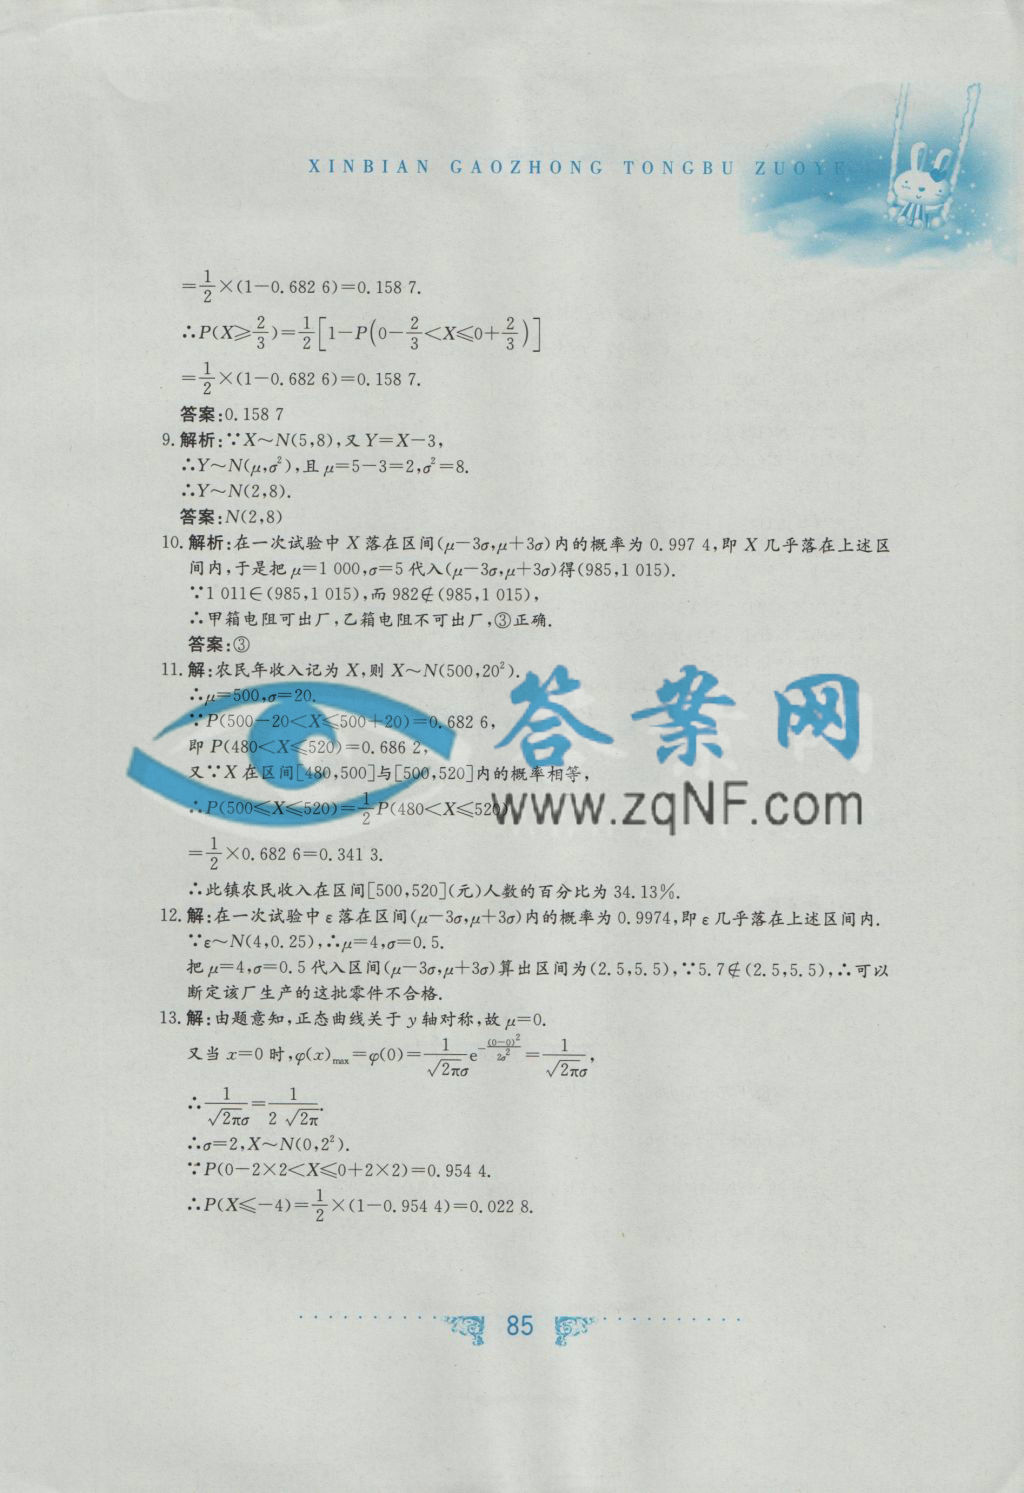 XINBIAN GAOZHONG TONGBU ZUOYE
=1/2×(1-0.682 6)=0.158 7.
∴P(X≥2/3)=1/2[1-P(0-2/3<X≤0+2/3)]
=1/2×(1-0.682 6)=0.158 7.
答案:0.158 7
9.解析:∵X~N(5,8),又Y=X-3,
∴Y~N(μ,σ²),且μ=5-3=2,σ²=8.
∴Y~N(2,8).
答案:N(2,8)
10.解析:在一次试验中X落在区间(μ-3σ,μ+3σ)内的概率为0.997 4,即X几乎落在上述区
间内,于是把μ=1 000,σ=5代入(μ-3σ,μ+3σ)得(985,1 015).
∵1 011∈(985,1 015),而982∉(985,1 015),
∴甲箱电阻可出厂,乙箱电阻不可出厂,③正确.
答案:③
11.解:农民年收入记为X,则X~N(500,20²).
∴μ=500,σ=20.
∵P(500-20<X≤500+20)=0.682 6,
即P(480<X≤520)=0.686 2,
又∵X在区间[480,500]与[500,520]内的概率相等,
∴P(500≤X≤520)=1/2P(480<X≤520)
=1/2×0.682 6=0.341 3.
∴此镇农民收入在区间[500,520](元)人数的百分比为34.13%.
12.解:在一次试验中ε落在区间(μ-3σ,μ+3σ)内的概率为0.9974,即ε几乎落在上述区间内.
∵ε~N(4,0.25),∴μ=4,σ=0.5.
把μ=4,σ=0.5代入区间(μ-3σ,μ+3σ)算出区间为(2.5,5.5),∵5.7∉(2.5,5.5),∴可以
断定该厂生产的这批零件不合格.
13.解:由题意知,正态曲线关于y轴对称,故μ=0.
又当x=0时,φ(x)max=φ(0)=1/(√2πσ)e^(-(0-0)²/2σ²)=1/(√2πσ),
∴1/(√2πσ)=1/(2√2π).
∴σ=2,X~N(0,2²).
∵P(0-2×2<X≤0+2×2)=0.954 4.
∴P(X≤-4)=1/2×(1-0.954 4)=0.022 8.
答案网
www.zqNF.com
85